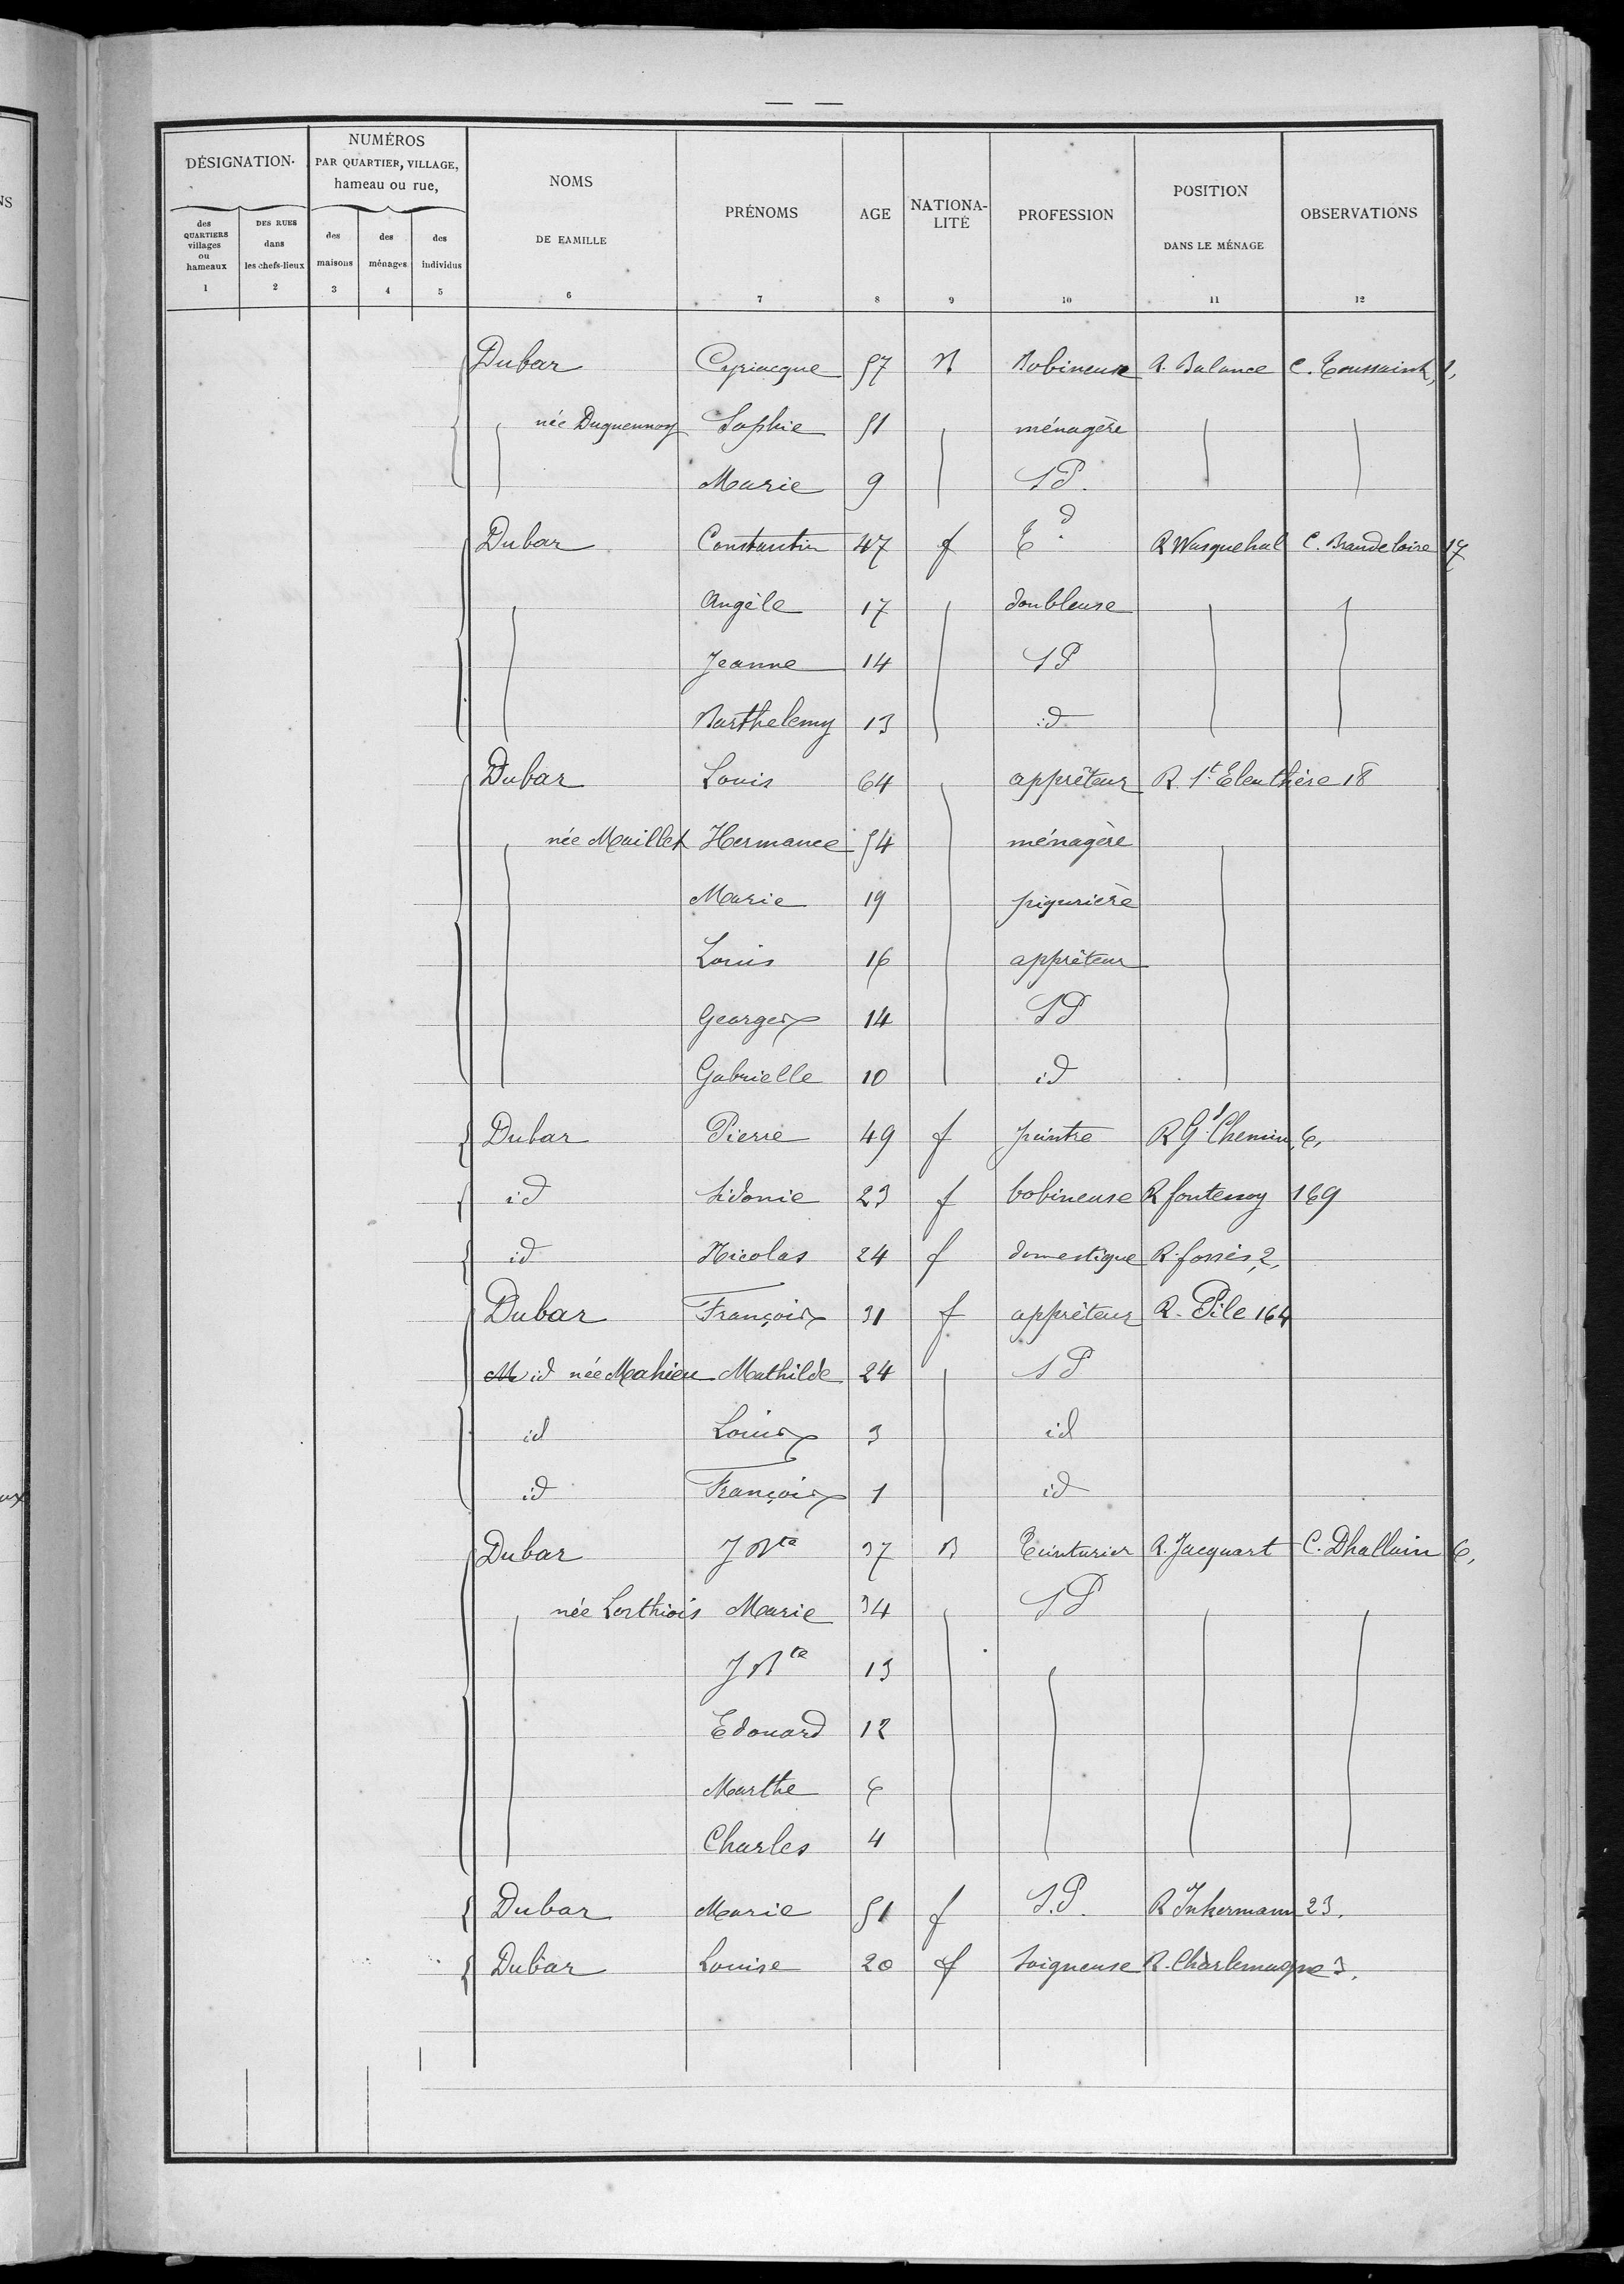 — —
DÉSIGNATION
NUMÉROS
PAR QUARTIER, VILLAGE,
hameau ou rue,
NOMS
DE FAMILLE
PRÉNOMS
AGE
NATIONA-
LITÉ
PROFESSION
POSITION
DANS LE MÉNAGE
OBSERVATIONS
des
QUARTIERS
villages
ou
hameaux
DES RUES
dans
les chefs-lieux
des
maisons
des
ménages
des
individus
1 2 3 4 5 6 7 8 9 10 11 12
Dubar Cyriacque 57 B Bobineuse R. Balance C. Toussaint, 1,
née Duquennoy Sophie 51 ménagère
Marie 9 SP.
Dubar Constantin 47 f R Wasquehal C. Brandeloire 17
Angèle 17 doubleuse
Jeanne 14 SP
Barthelemy 13 id
Dubar Louis 64 apprêteur R. St. Eleuthère 18
née Maillet Hermance 54 ménagère
Marie 19 piqurière
Louis 16 apprêteur
Georges 14 SP
Gabrielle 10 id
Dubar Pierre 49 f peintre R Gd. Chemin, 6,
id Sidonie 23 f bobineuse R fontenoy 169
id Nicolas 24 f domestique R. fossés, 2,
Dubar François 31 f apprêteur R. Pile 164
id née Mahieu Mathilde 24 SP
id Louis 3 id
id François 1 id
Dubar J Bte 37 B Teinturier R. Jacquart C. Dhalluin 6,
née Lerthiois Marie 34 SP
J Bte 13
Edouard 12
Marthe 6
Charles 4
Dubar Marie 51 f S.P. R Inkermann 23.
Dubar Louise 20 f Soigneuse R. Charlemagne 3.